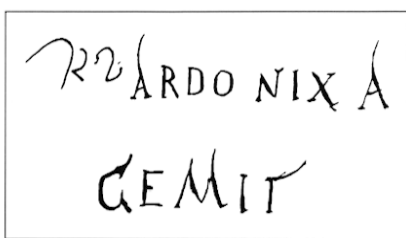 ARDO NIX A
GEMIT